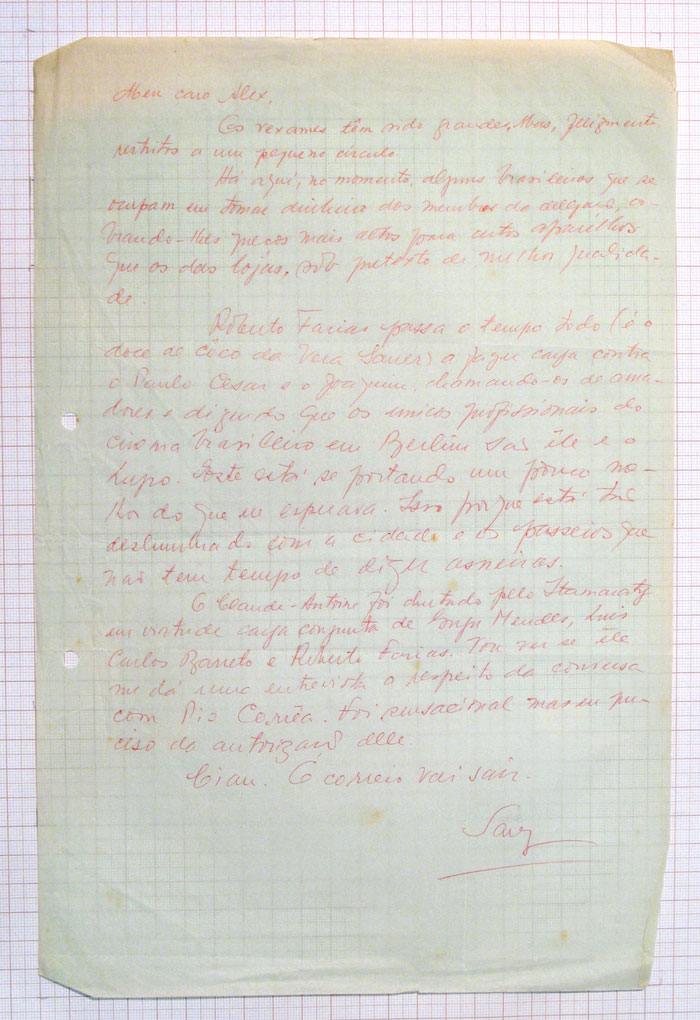 Meu caro Alex,
Os vexames têm sido grandes, Mas, felizmente
restritos a um pequeno círculo.
Há aqui, no momento, alguns brasileiros que se
ocupam em tomar dinheiro dos membros da delegação, co-
brando-lhes preços mais altos para certos aparelhos
que os das lojas, sob pretexto de melhor qualida-
de.
Roberto Farias passa o tempo todo (é o
doce de côco da Vera Sauer) a fazer carga contra
o Paulo Cesar e o Joaquim, chamando-os de ama-
dores e dizendo que os únicos profissionais do
cinema brasileiro em Berlim são êle e o
Lupo. Êste está se portando um pouco me-
lhor do que eu esperava. Isso porque está tão
deslumbrado com a cidade e os passeios que
não tem tempo de dizer asneiras.
O Claude-Antoine foi chutado pelo Itamaraty
em virtude carga conjunta de Mendes, Luis
Carlos Barreto e Roberto Farias. Vou ver se êle
me dá uma entrevista a respeito da conversa
com Pio Corrêa. Foi sensacional mas eu pre-
ciso da autorização delle.
Ciau. O correio vai sair.